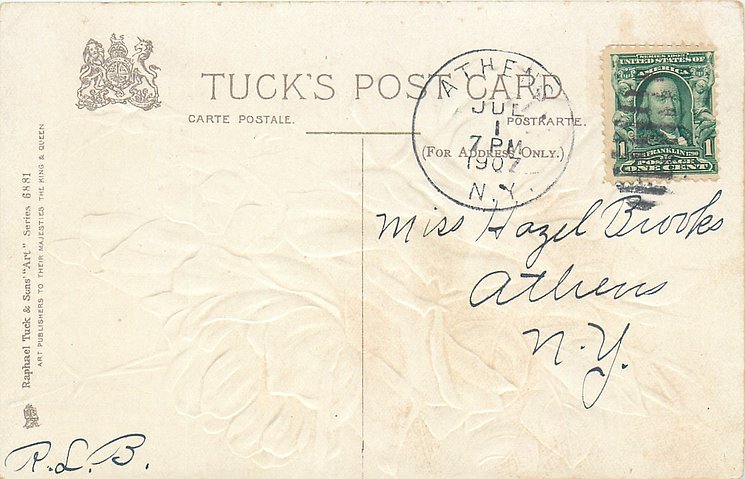 TUCK'S POST CARD
CARTE POSTALE.
POSTKARTE.
(For Address Only.)
ATHENS
JUL
1
7 PM
1907
N.Y.
SERIES 1902
UNITED STATES OF
AMERICA
1 FRANKLIN 1
POSTAGE
ONE CENT
Miss Hazel Brooks
Athens
N.Y.
Raphael Tuck & Sons' "Art" Series 6881
ART PUBLISHERS TO THEIR MAJESTIES THE KING & QUEEN
R.L.B.